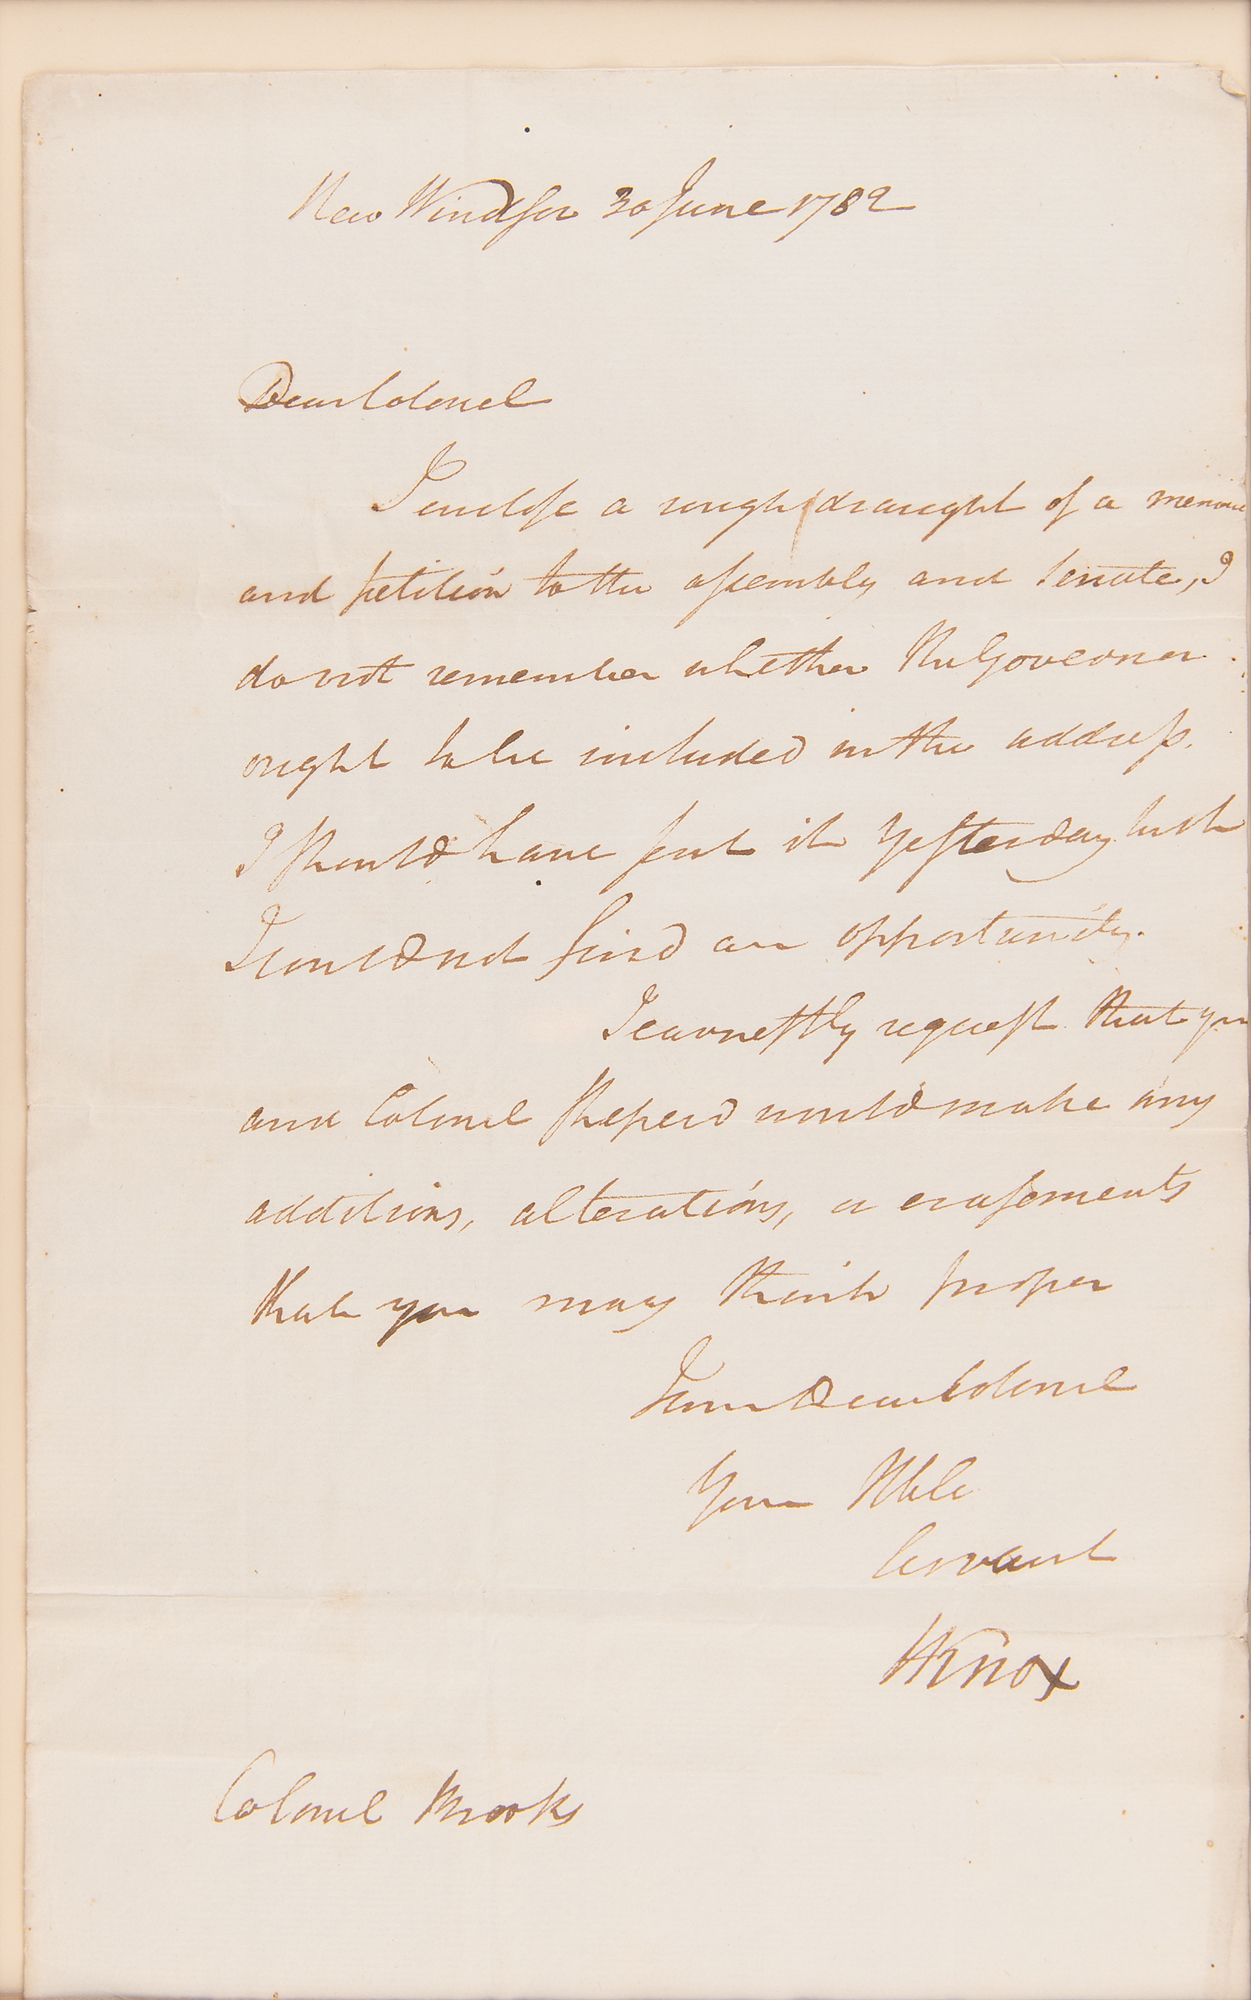 New Windsor 30 June 1782
Dear Colonel
I enclose a rough draught of a memori
and petition to the assembly and senate, I
do not remember whether the Governor
ought to be included in the address.
I should have sent it yesterday but
I could not find an opportunity.
I earnestly request that you
and Colonel Sheperd would make any
additions, alterations, or erasements
that you may think proper
I am Dear Colonel
Your Hble
Servant
HKnox
Colonel Brooks